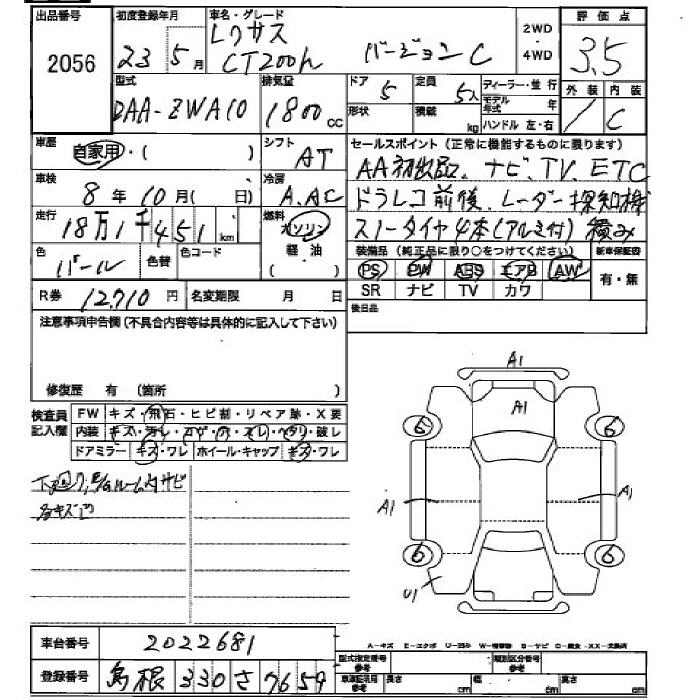 出品番号 初度登録年月 車名・グレード 2WD・4WD 評価点
2056 23年 5月 レクサス CT200h バージョンC 3.5
型式 排気量 ドア 定員 ディーラー・並行 外装 内装
DAA-ZWA10 1800cc 5 5人 モデル年式 年 C
形状 積載 kg ハンドル 左・右
車歴 シフト セールスポイント(正常に機能するものに限ります)
自家用・( ) AT AA初出品。ナビ、TV、ETC
車検 冷房 ドラレコ前後、レーダー探知機
8年10月( 日) A.AC スノータイヤ4本(アルミ付)積み
走行 18万1千451km 燃料 ガソリン 軽油 ( )
色 パール 色替 色コード
装備品(純正品に限り○をつけてください) 新車保証書
PS PW ABS エアB AW 有・無
SR ナビ TV カワ
R券 12710円 名変期限 月 日 後日品
注意事項申告欄(不具合内容等は具体的に記入して下さい)
修復歴 有 (箇所 )
検査員記入欄 FW キズ・飛石・ヒビ割・リペア跡・X要
内装 キズ・汚レ・コゲ・穴・スレ・ヘタリ・破レ
ドアミラー キズ・ワレ ホイール・キャップ キズ・ワレ
A1
A1
6 6
A1 A1
6 6
U1
車台番号 2022681
A-キズ E-エクボ
登録番号 島根 330 さ 7659
型式指定番号 参考 類別区分番号 参考
車庫証明用 参考 長さ cm 幅 cm 高さ cm